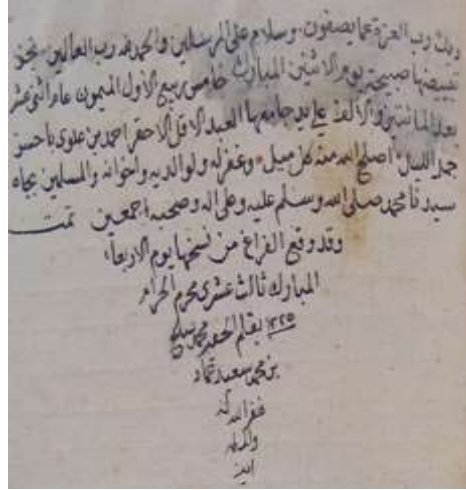 ربك رب العزة عما يصفون. وسلام على المرسلين والحمد لله رب العالمين
تبييضها صبيحة يوم الاثنين المبارك خامس ربيع الأول الميمون عام اثني عشر
بعد المائتين والألف على يد جامعها العبد الأقل الأحقر احمد بن علوي باحسن
جمل الليل اصلح الله منه كل ميل وغفر له ولوالديه واخوانه والمسلمين بجاه
سيدنا محمد صلى الله وسلم عليه وعلى اله وصحبه اجمعين تمت
وقد وقع الفراغ من نسخها يوم الاربعاء
المبارك ثالث عشر محرم الحرام
١٣٢٥ بقلم الحقير محمد
بن محمد سعيد
غفر الله له
والديه
امين